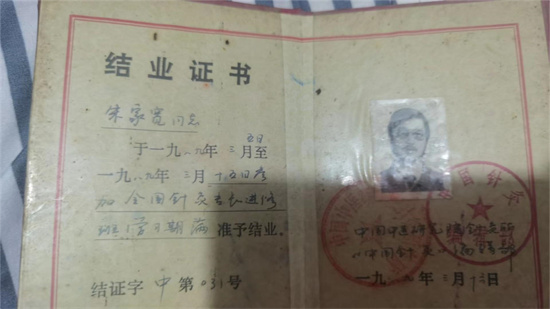 结业证书
朱家宽同志:
五日
于一九八九年三月至
一九八九年三月十五日参
加全国针灸专长进修
班学习期满准予结业。
结证字中第031号
中国中医研究院针灸所
《中国针灸》编辑部
一九八九年三月十五日